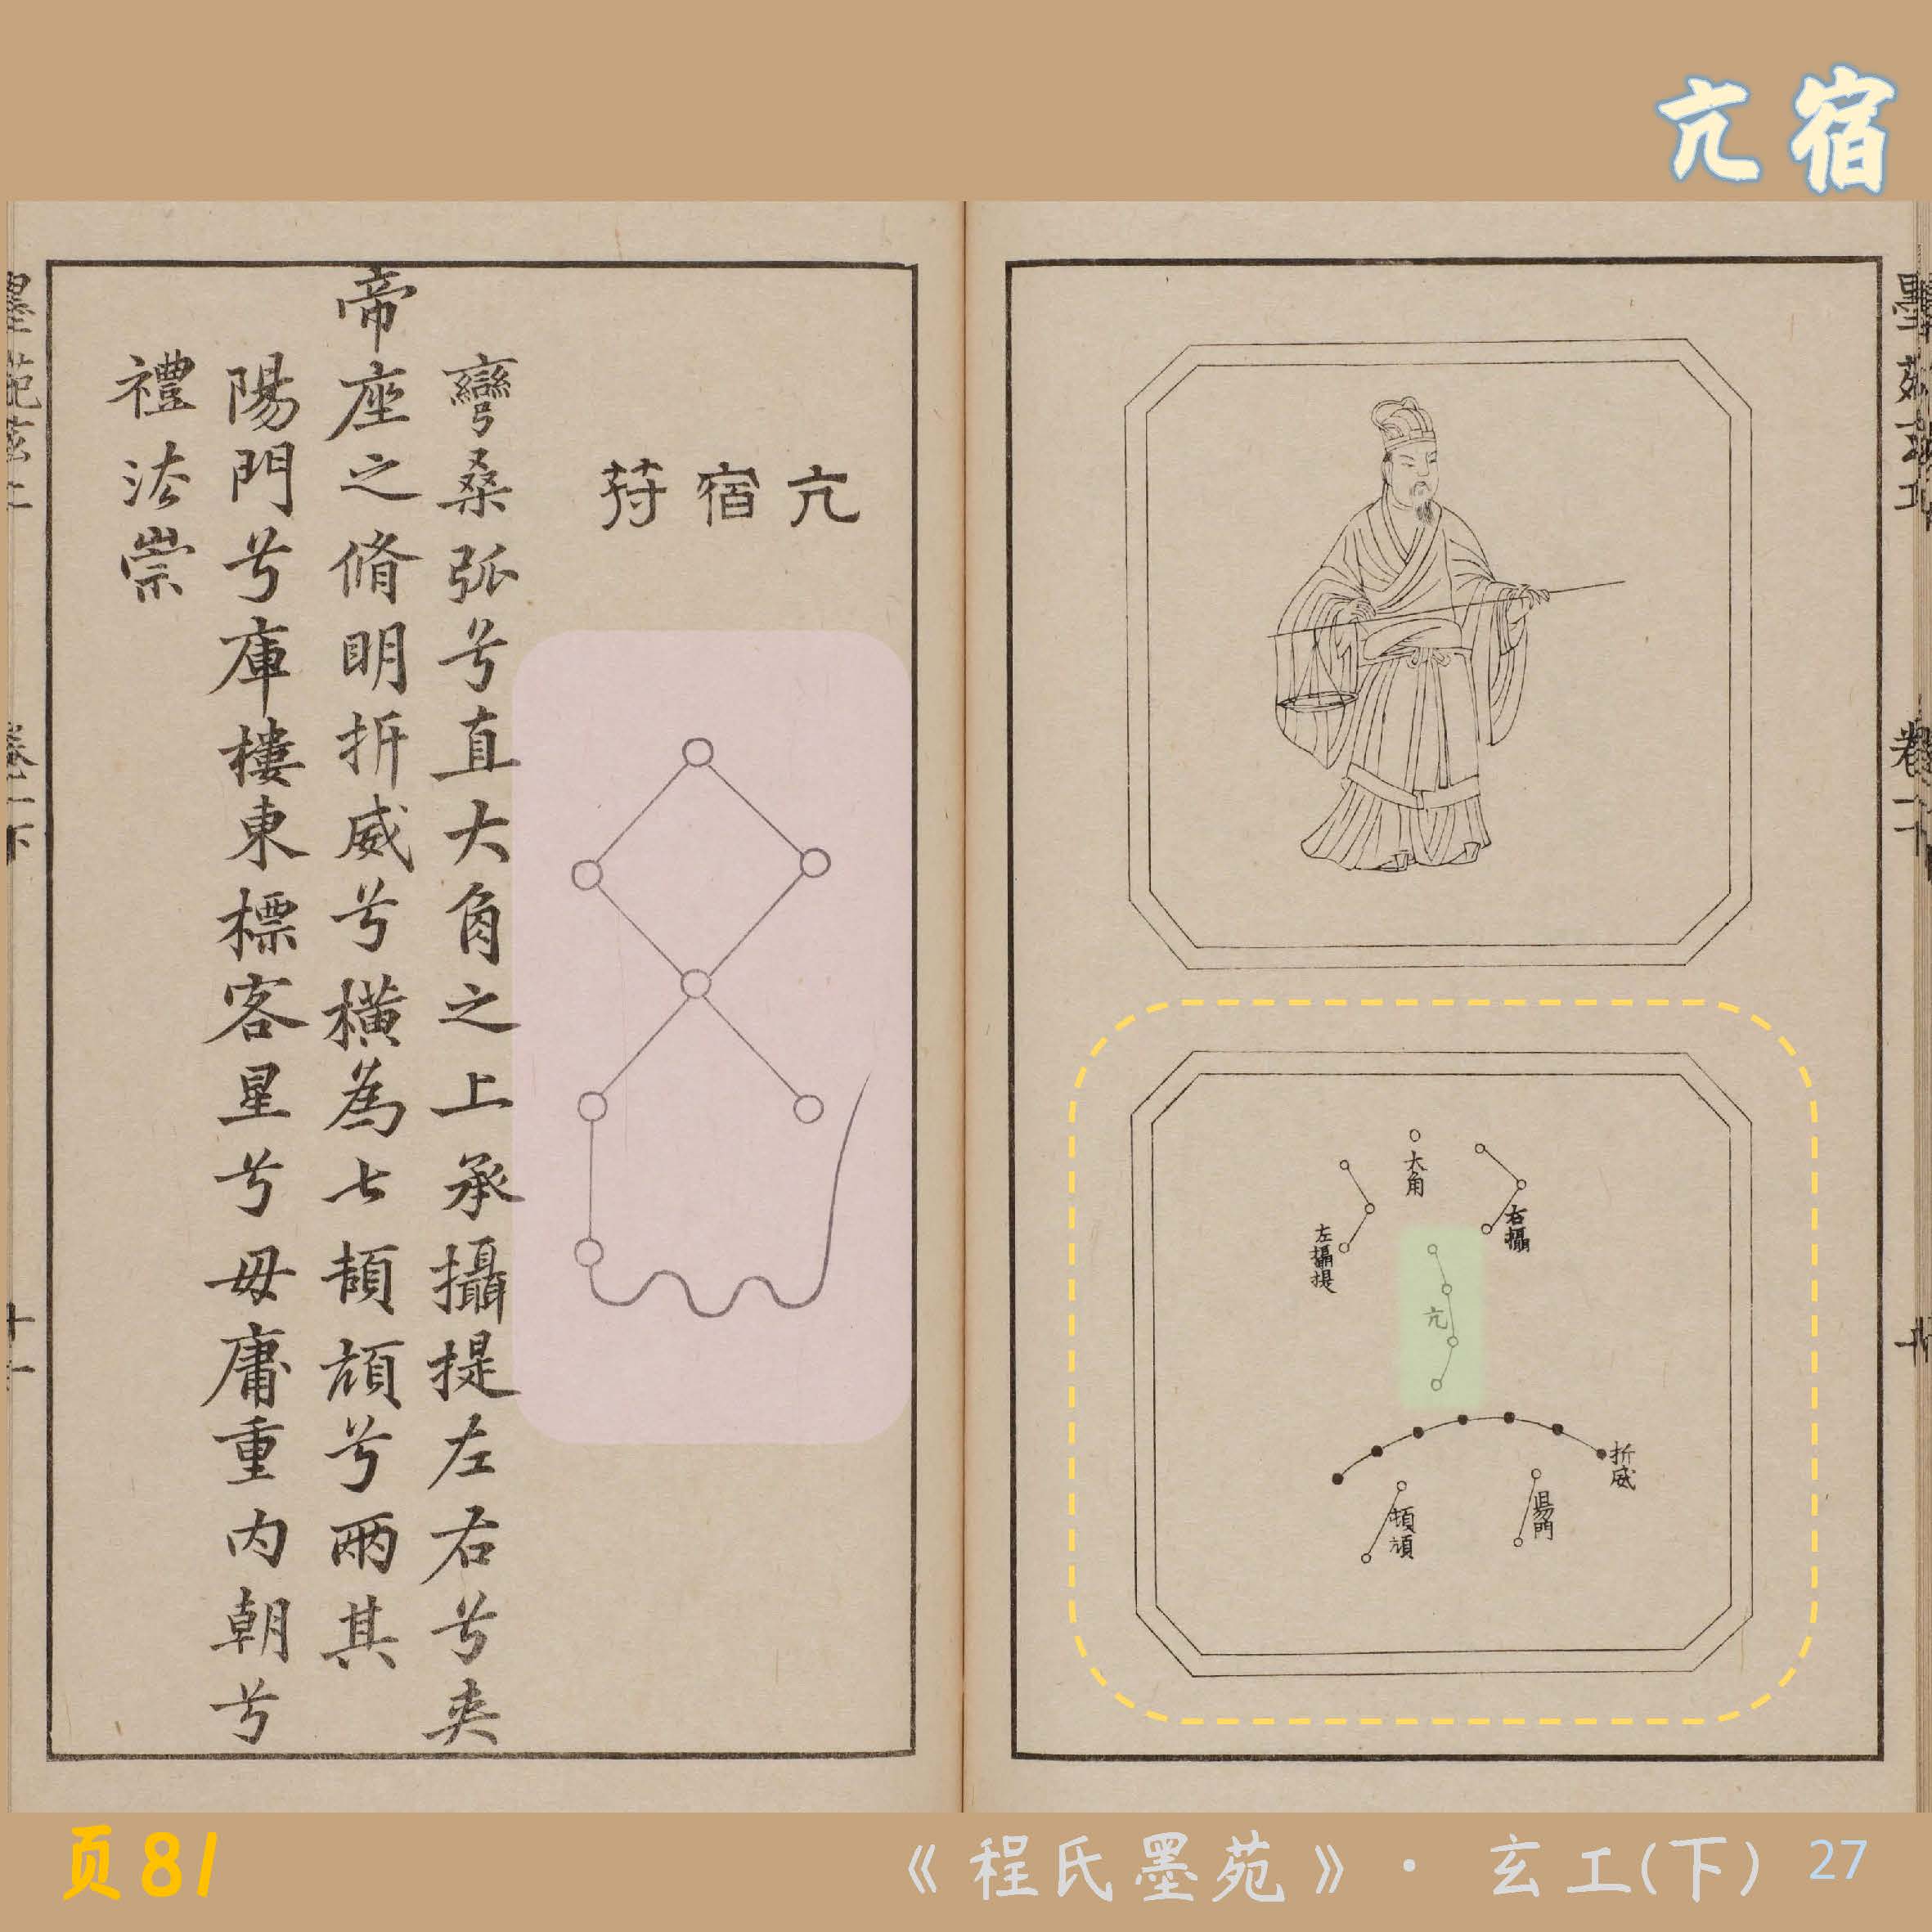 亢宿
亢宿符
彎桑弧兮直大角之上承攝提左右兮夾
帝座之脩明折威兮橫為七頡頏兮兩其
陽門兮庫樓東標客星兮毋庸重內朝兮
禮法崇
大角
右攝
左攝提
亢
折威
頓頑
陽門
墨苑玄工
卷下
十一
页81
《程氏墨苑》· 玄工(下) 27